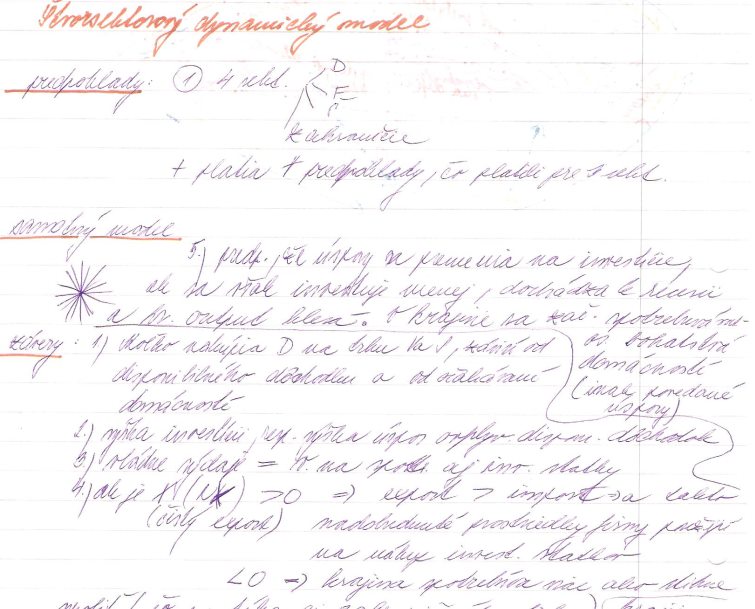 Štvorsektorový dynamický model
predpoklady: ① 4 sekt. D
F
zahraničie
+ platia predpoklady, čo platili pre 3 sekt.
samotný model
5.) predp., že úspory sa premenia na investície,
ale sa však investuje menej, dochádza k recesii
a tzv. output klesá. V krajine sa zač. spotrebováv.
závery: 1) Koľko nakúpia D na trhu VaS, závisí od bohatstva
disponibilného dôchodku a od očakávaní domácností
domácností (inak povedané
úspory)
2.) výška investícií, resp. výška úspor ovplyv. dispon. dôchodok
3) vládne výdaje = V. na spotr. aj inv. statky
4.) ak je X (NX) >0 ⇒ export > import ⇒ a takto
(čistý export) nadobudnuté prostriedky firmy použijú
na nákup invest. statkov
<0 ⇒ krajina spotrebúva viac ako